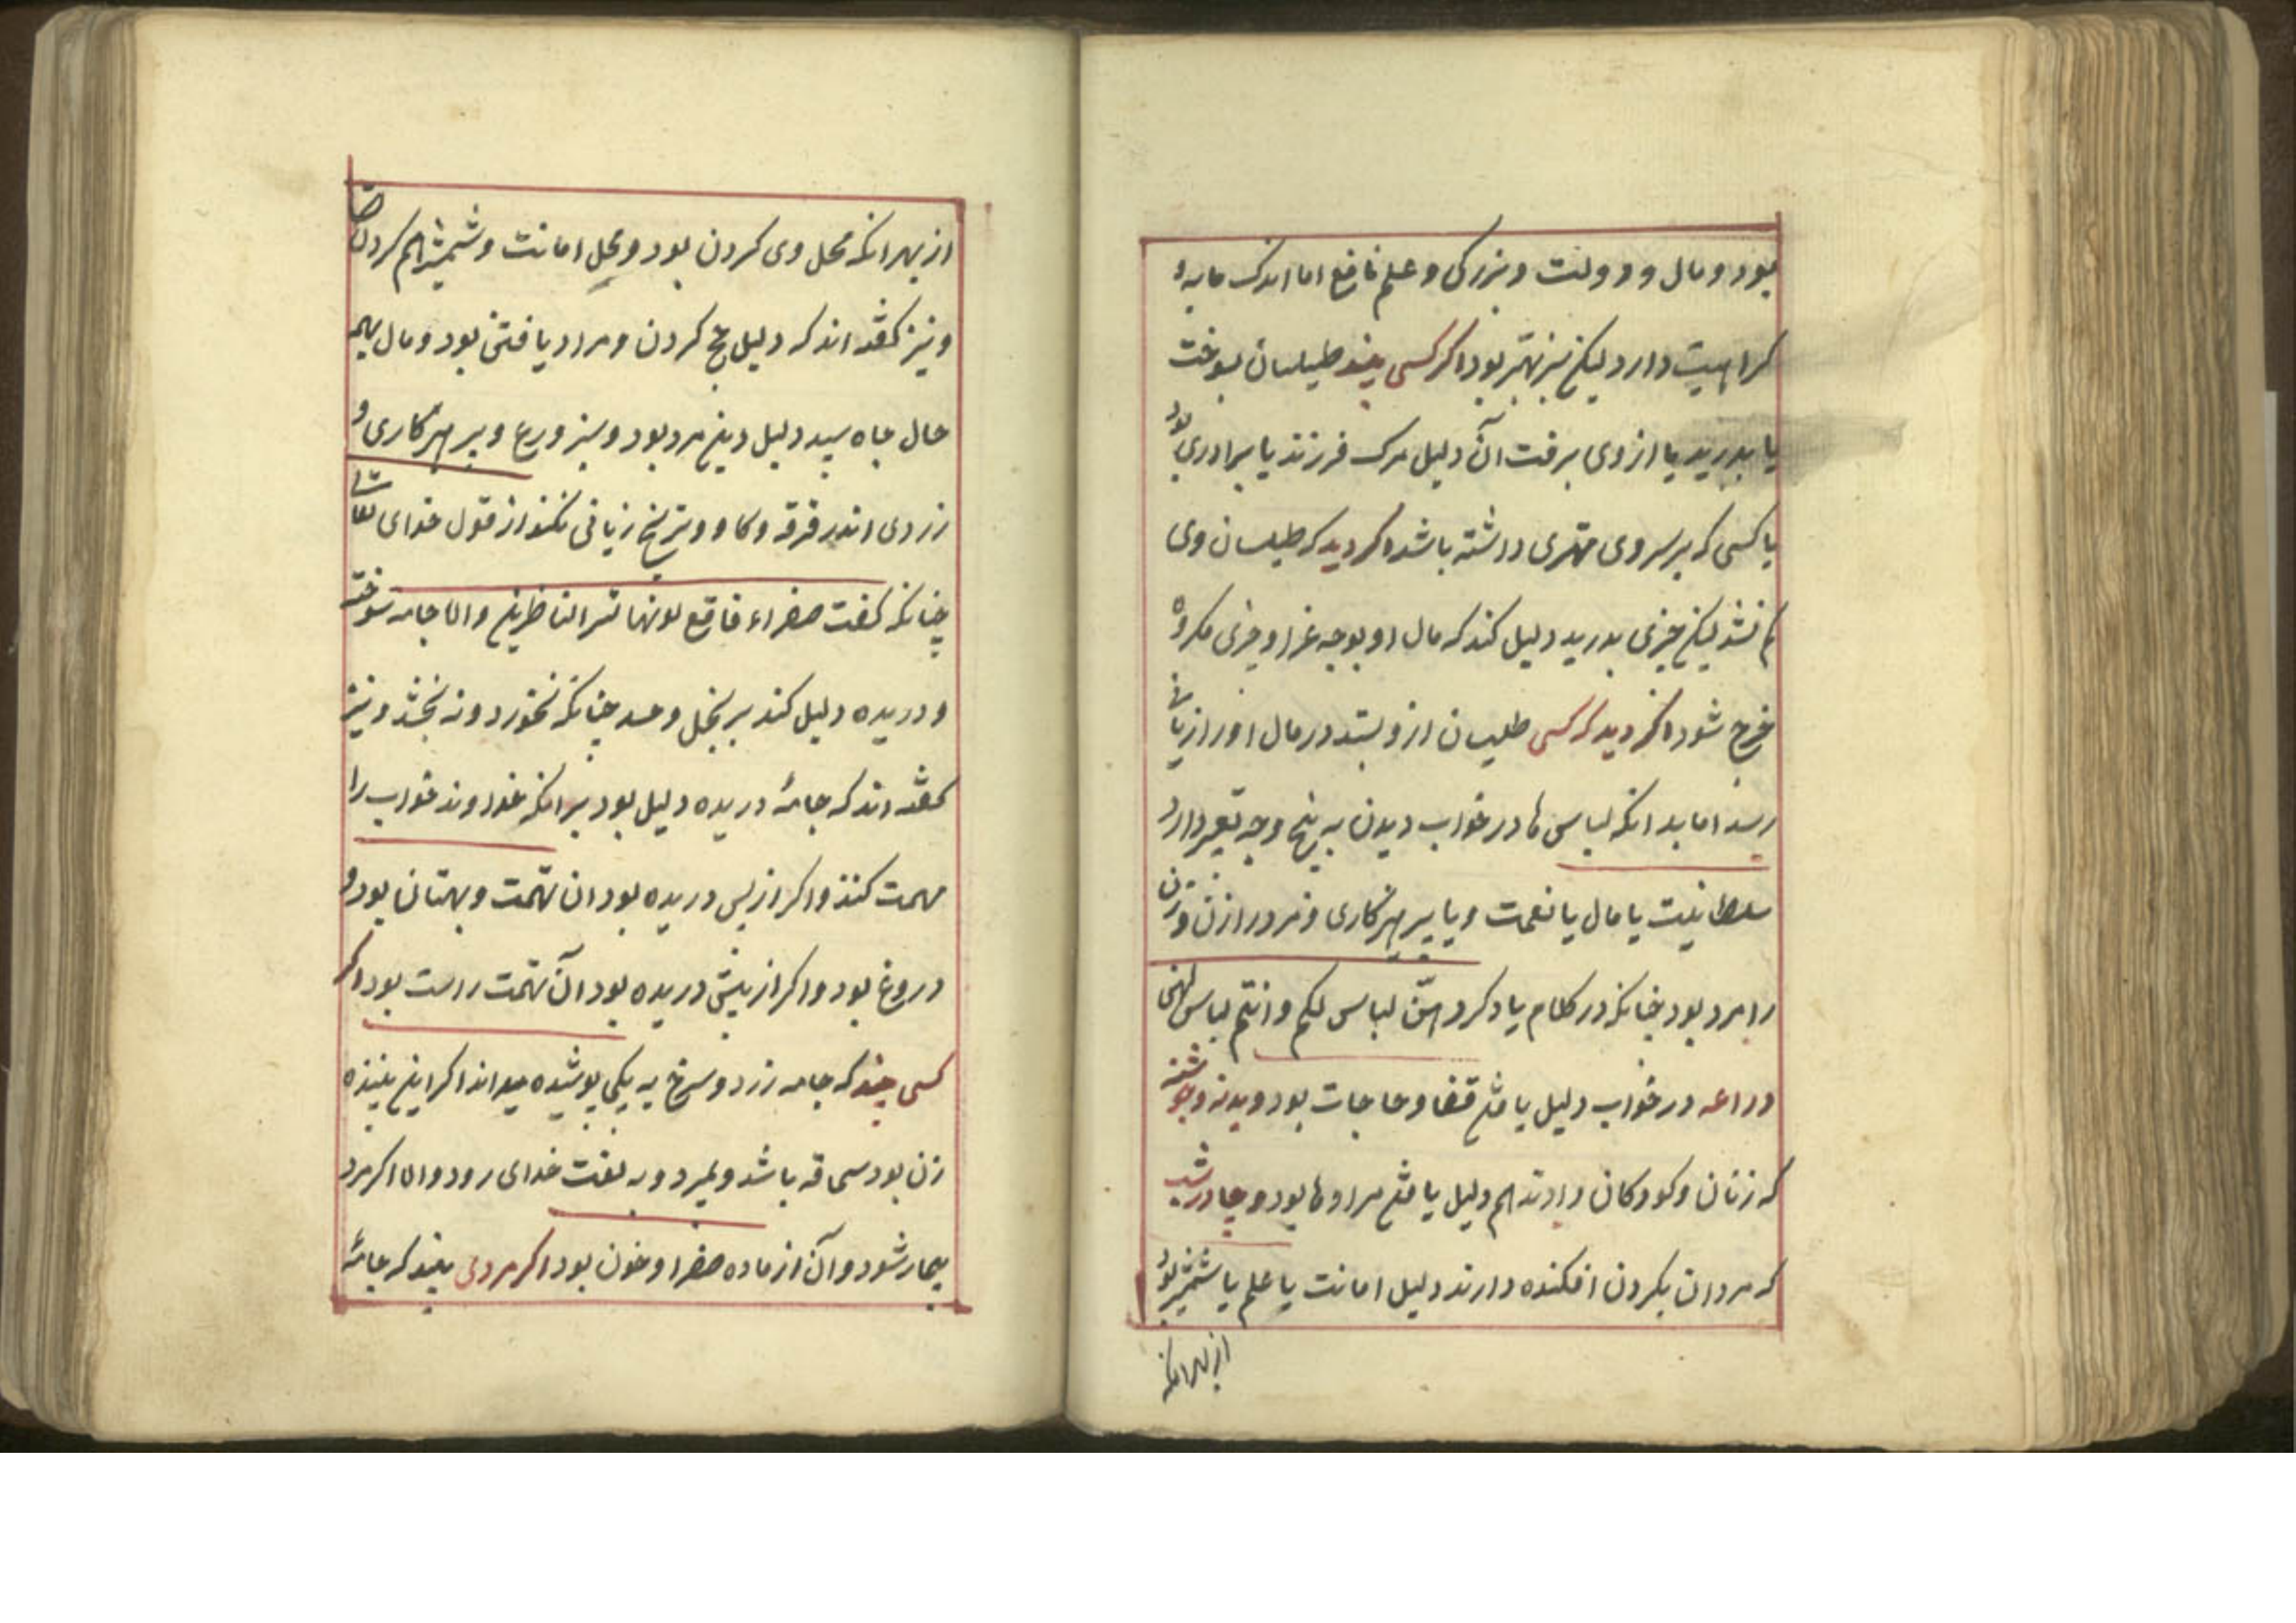 بود و مال و دولت و بزرکی و علم نافع اما اندک مایه و
کراهیت دارد لیکن سبز بهتر بود اکر کسی بیند طیلسان بسوخت
یا بدرید یا از وی برفت آن دلیل مرک فرزند یا برادری بود
یا کسی که بر سر وی مهتری داشته باشد اکر دید که طیلسان وی
کم نشد لیکن چیزی بدرید دلیل کند که مال او بوجه غرا و چیزی مکروه
خرج شود اکر دید که کسی طلیسان ازو بستد در مال او را زیانی
رسد اما بدانکه لباس ها در خواب دیدن به پنج وجه تعبیر دارد
سلطانیت یا مال یا نعمت و یا پرهیزکاری و مرد را زن و زن
را مرد بود چنانکه در کلام یاد کرد هنّ لباس لکم و انتم لباس لهن
دراعه در خواب دلیل یافتن قضا و حاجات بود و بدنه و جوشنه
که زنان و کودکان دارند هم دلیل یافتن مرادها بود و چادر شب
که مردان بکردن افکنده دارند دلیل امانت یا علم یا شمشیر بود
از بهر انکه
از بهر انکه محل وی کردن بود و محل امانت و شمشیر هم کردن
و نیز کفته اند که دلیل حج کردن و مراد یافتن بود و مال بهمه
حال جاه سپید دلیل دین مرد بود و سبز ورع و پرهیزکاری و
زردی اندر فرقه و کاو و ترنج زیانی نکند از قول خدای تعالی
چنانکه کفت صفراء فاقع لونها تسر الناظرین و اما جامه سوخته
و دریده دلیل کند بر بخل و حسد چنانکه نخورد و نه بخشد و نیز
کفته اند که جامهٔ دریده دلیل بود بر انکه خداوند خواب را
مهمت کنند و اکر از پس دریده بود ان تهمت و بهتان بود و
دروغ بود و اکر از پیش دریده بود آن تهمت راست بود اکر
کسی بیند که جامه زرد و سرخ به یکی پوشیده میداند اکر این بیننده
زن بود سحاقه باشد و بمیرد و به لعنت خدای رود و اما اکر مرد
بیمار شود و آن از ماده صفرا و خون بود اکر مردی بیند که جامهٔ